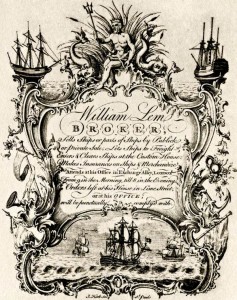 William Lem
BROKER,
Sells Ships or parts of Ships by Publick
or Private Sale, Lets Ships to Freight
Enters & Clears Ships at the Custom House
Makes Insurances on Ships & Merchandize
Attends at his Office in Exchange Alley, Lombard
in the Morning till 8 in the Evening
Orders left at his House in Lime Street
or at his OFFICE,
will be punctually complyed with.